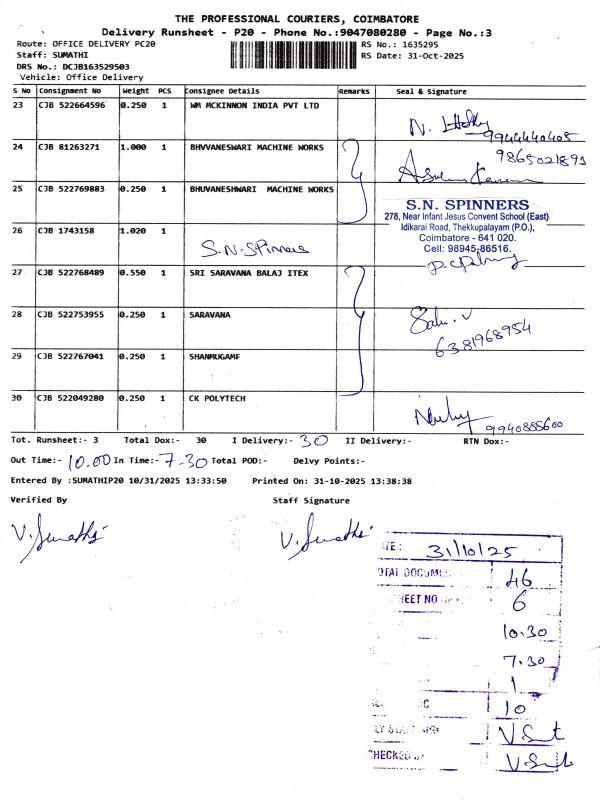 THE PROFESSIONAL COURIERS, COIMBATORE
Delivery Runsheet - P20 - Phone No.:9047080280 - Page No.:3
Route: OFFICE DELIVERY PC20 RS No.: 1635295
Staff: SUMATHI RS Date: 31-Oct-2025
DRS No.: DCJB163529503
Vehicle: Office Delivery
S No Consignment No Weight PCS Consignee Details Remarks Seal & Signature
23 CJB 522664596 0.250 1 WM MCKINNON INDIA PVT LTD
9944440405
24 CJB 81263271 1.000 1 BHVVANESWARI MACHINE WORKS
25 CJB 522769883 0.250 1 BHUVANESHWARI MACHINE WORKS
S.N. SPINNERS
278, Near Infant Jesus Convent School (East)
Idikarai Road, Thekkupalayam (P.O.),
Coimbatore - 641 020.
Cell: 98945-86516.
26 CJB 1743158 1.020 1 S.N-Spinners
27 CJB 522768489 0.550 1 SRI SARAVANA BALAJ ITEX
28 CJB 522753955 0.250 1 SARAVANA
6381968954
29 CJB 522767041 0.250 1 SHANMUGAMF
30 CJB 522049280 0.250 1 CK POLYTECH
9940888600
Tot. Runsheet:- 3 Total Dox:- 30 I Delivery:- 30 II Delivery:- RTN Dox:-
Out Time:- 10.00 In Time:- 7-30 Total POD:- Delvy Points:-
Entered By :SUMATHIP20 10/31/2025 13:33:50 Printed On: 31-10-2025 13:38:38
Verified By Staff Signature
V. Sumathi V. Sumathi
31/10/25
46
SHEET NO 6
10.30
7.30
1
10
CHECKED